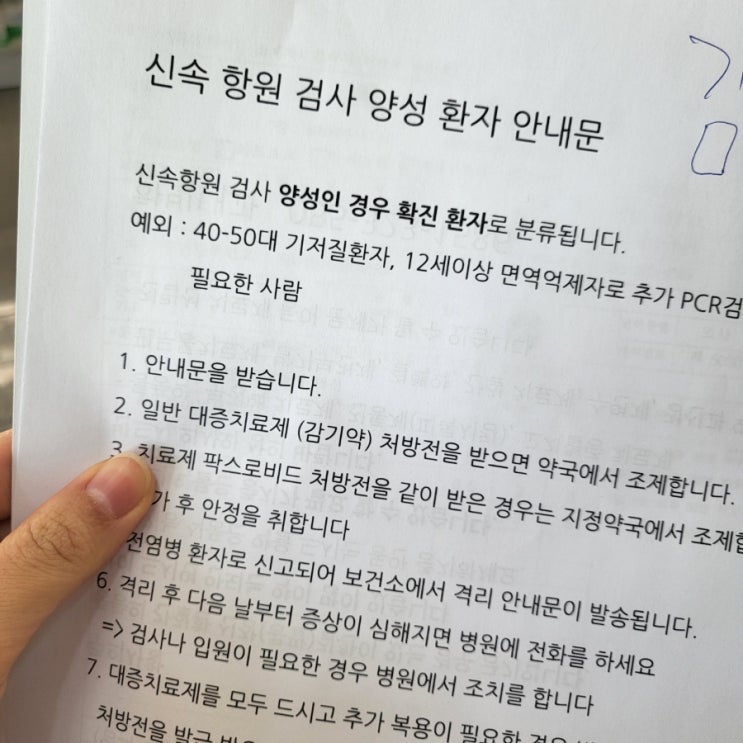 신속 항원 검사 양성 환자 안내문
신속항원 검사 양성인 경우 확진 환자로 분류됩니다.
예외 : 40-50대 기저질환자, 12세이상 면역억제자로 추가 PCR검
필요한 사람
1. 안내문을 받습니다.
2. 일반 대증치료제 (감기약) 처방전을 받으면 약국에서 조제합니다.
3. 치료제 팍스로비드 처방전을 같이 받은 경우는 지정약국에서 조제합
가 후 안정을 취합니다
전염병 환자로 신고되어 보건소에서 격리 안내문이 발송됩니다.
6. 격리 후 다음 날부터 증상이 심해지면 병원에 전화를 하세요
=> 검사나 입원이 필요한 경우 병원에서 조치를 합니다
7. 대증치료제를 모두 드시고 추가 복용이 필요한
처방전을 발급